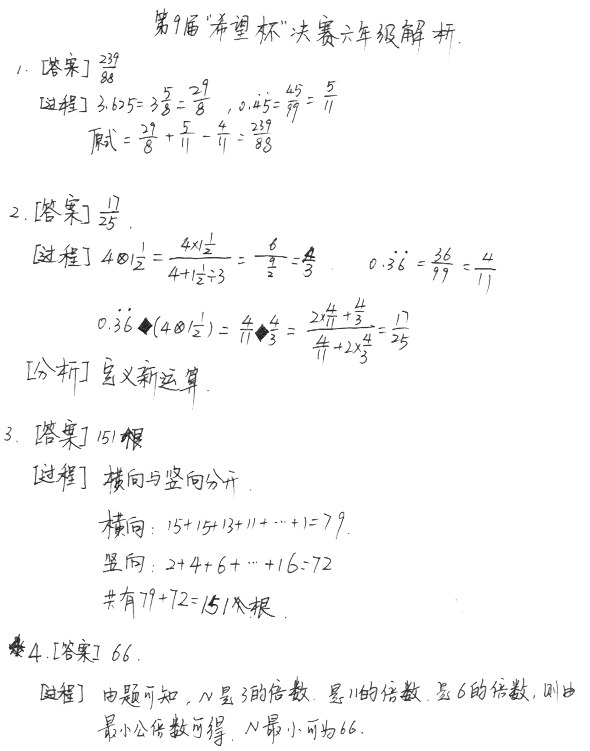 第9届"希望杯"决赛六年级解析.
1. [答案] 239/88
[过程] 3.625=3 5/8=29/8 , 0.4̇5̇=45/99=5/11
原式=29/8+5/11-4/11=239/88
2. [答案] 17/25.
[过程] 4⊗1 1/2=(4×1 1/2)/(4+1 1/2÷3)=6/(9/2)=4/3. 0.3̇6̇=36/99=4/11
0.3̇6̇◆(4⊗1 1/2)=4/11◆4/3=(2×4/11+4/3)/(4/11+2×4/3)=17/25
[分析] 定义新运算.
3. [答案] 151根
[过程] 横向与竖向分开.
横向: 15+15+13+11+…+1=79.
竖向: 2+4+6+…+16=72
共有79+72=151根.
4. [答案] 66.
[过程] 由题可知, N是3的倍数. 是11的倍数. 是6的倍数, 则由
最小公倍数可得. N最小可为66.